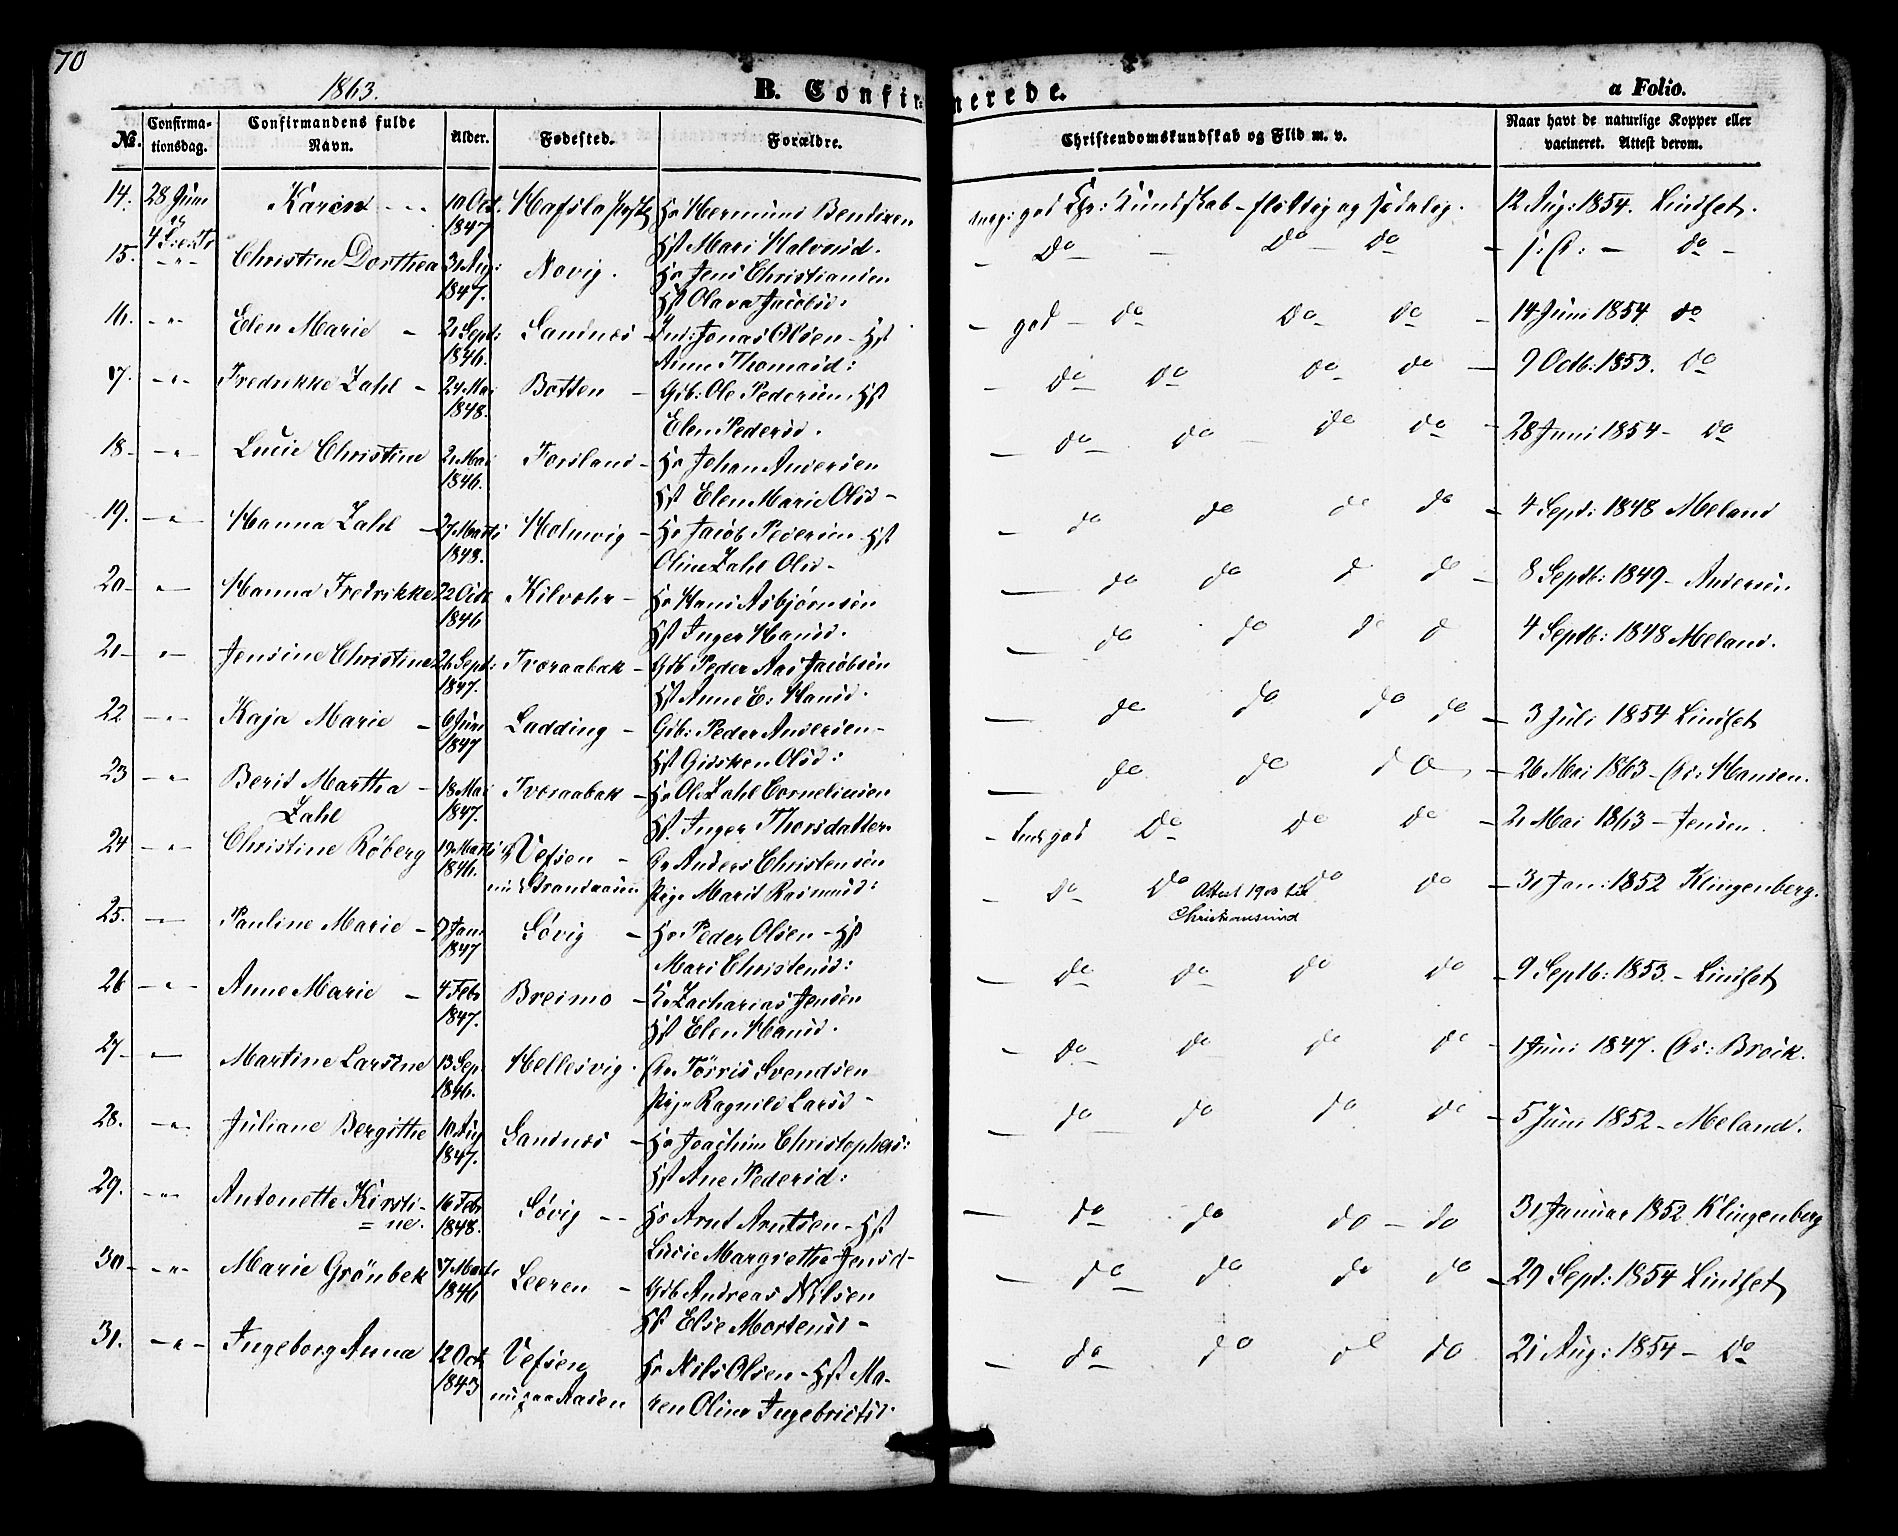 70
1863.
B. Confirmerede.
a Folio.
No. Confirmationsdag. Confirmandens fulde Navn. Alder. Fødested. Forældre. Christendomskundskab og Flid m. v. Naar havt de naturlige Kopper eller vacineret. Attest derom.
14. 28 Juni Karen - - 10 Oct. Hafsla Hr Hermund Bendixen god Chr: Kundskab - flittig og sædelig. 12 Aug: 1854. Lindset.
4 S. e. Tr 1847 Hst Mari Halvorsd.
15. - " - Christine Dorthea 31 Aug: Novig. Hr Jens Christiansen - Do - Do Do - - do -
1847. Hst Olava Jacobsd:
16. - " - Elen Marie - 21 Sept: Sandnes - Ind: Jonas Olsen - Hst - god - do Do do - 14 Juni 1854 do
1846. Anne Thomasd:
17. - " - Fredrikke Zahl - 24 Mai Botten - Gdb: Ole Pedersen, Hst - do do do do - 9 Octb: 1853. do
1848. Elen Pedersd.
18. - " - Lucie Christine 21 Mai Forsland - Hr Johan Andersen - do do - do do - 28 Juni 1854 - do
1846. Hst Elen Marie Olsd -
19. - " - Hanna Zahl - 27 Marts Holmvig - Hr Jacob Pedersen Hst - do do do do - 4 Sept: 1848 Meland
1848. Oline Zahl Olsd -
20 - " - Hanna Fredrikke 22 Octb Kilvohr - Hr Hans Asbjørnsen - do do d do - 8 Septb: 1849 - Andersen.
1846 Hst Inger Hansd.
21 - " - Jensine Christine 26 Sept: Tveraabak - Gdb Peder Aas Jacobsen - do do do d 4 Septb: 1848 Meland.
1847. Hst Anne E: Hansd.
22 - " - Kaja Marie - 6 Juni Ladding - Gdb: Peder Andersen - - do do do do - 3 Juli 1854 Lindset
1847 Hst Gisken Olsd:
23 - " - Berit Martha - 18 Mai Tveraabak - Hr Ole Zahl Corneliusen - do do do - 26 Mai 1863 - Hansen.
Zahl 1847. Hst. Inger Thorsdatter.
24 - " - Christine Røberg Marts Vefsen - Anders Christensen - god Do Do do - 21 Mai 1863 - Jensen.
1846. Pige Marit Rasmusd:
25. - Pauline Marie - 9 Jan. Søvig - Hr Peder Olsen - Hst - do Do do do - 31 Jan: 1852 Klingenberg.
Attest 1903 til
Christiansund
1847 Mari Christensd:
26 - " - Anne Marie - 4 Febr Breimo - Zacharias Jensen - do do do do - 9 Septb: 1853. - Lindset
1847. Hst Elen Hansd.
27 - Martine Larsine 13 Sep. Hellesvig. Tørris Svendsen - do do do do - 1 Juni 1847. Brock.
1846. Pige Ragnild Larsd -
28. - " - Juliane Bergithe 10 Aug Sandnes - Hr Joachim Christophers: - do do do do - 5 Juni 1852 - Meland.
1847. Hst Ane Pedersd:
29. - " - Antonette Kirsti- 16 Febr Søvig - - Hr Arnt Arntsen - Hst - do do do - do 31 Januar 1852 Klingenberg
= ne. 1848. Lucie Margrethe Jensd -
30 - " - Marie Grönbek 17 Marts Leeren - Gdb Andreas Nilsen - do do do do - 29 Sept: 1854 Lindset
1846 Hst Else Mortensd -
31. - " - Ingeborg Anna 12 Oct. Vefsen Hr Nils Olsen - Hst Ma- - do do do do 21 Aug: 1854 - Do
1843 nu paa Aasen ren Oline Ingebrictsd.